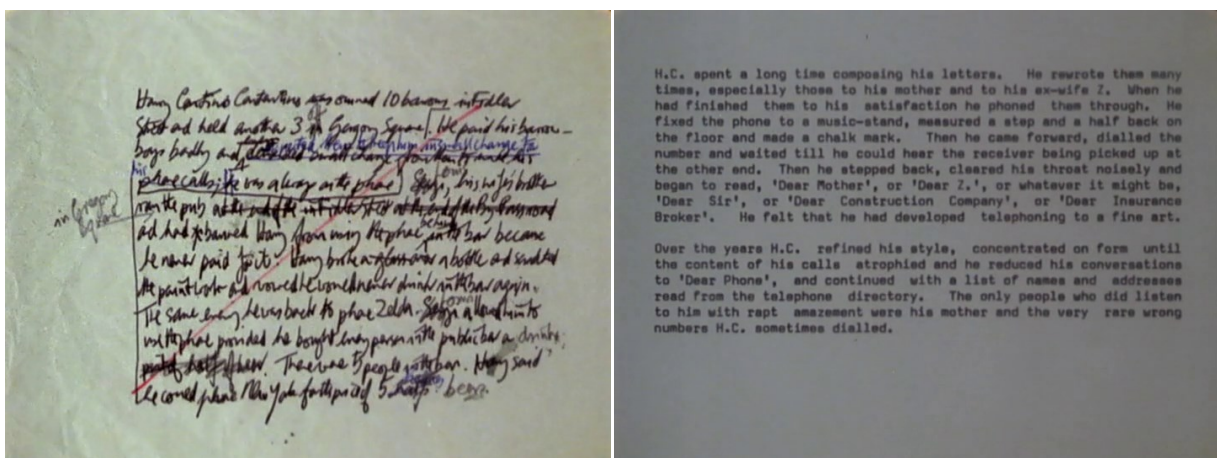 Harry Contino Constantino owned 10 barrows in Fidler
Street and held another 3 in Gregory Square. He paid his barrow-
boys badly and small change from them to make his
his
phone calls; he was always on the phone his wife's brother
in Gregory
Square
ran the pub at the end of the
and had banned Harry from using the phone in the bar because
behind
he never paid for it. Harry broke a glass over a bottle and scratched
the paintwork and vowed he would never drink in the bar again.
The same evening he was back to phone Zelda. allowed him to
use the phone provided he bought every person in the public bar a drink
of beer. There were 5 people in the bar. Harry said
he could phone New York for the price of 5 beers.
H.C. spent a long time composing his letters. He rewrote them many
times, especially those to his mother and to his ex-wife Z. When he
had finished them to his satisfaction he phoned them through. He
fixed the phone to a music-stand, measured a step and a half back on
the floor and made a chalk mark. Then he came forward, dialled the
number and waited till he could hear the receiver being picked up at
the other end. Then he stepped back, cleared his throat noisely and
began to read, 'Dear Mother', or 'Dear Z.', or whatever it might be,
'Dear Sir', or 'Dear Construction Company', or 'Dear Insurance
Broker'. He felt that he had developed telephoning to a fine art.
Over the years H.C. refined his style, concentrated on form until
the content of his calls atrophied and he reduced his conversations
to 'Dear Phone', and continued with a list of names and addresses
read from the telephone directory. The only people who did listen
to him with rapt amazement were his mother and the very rare wrong
numbers H.C. sometimes dialled.